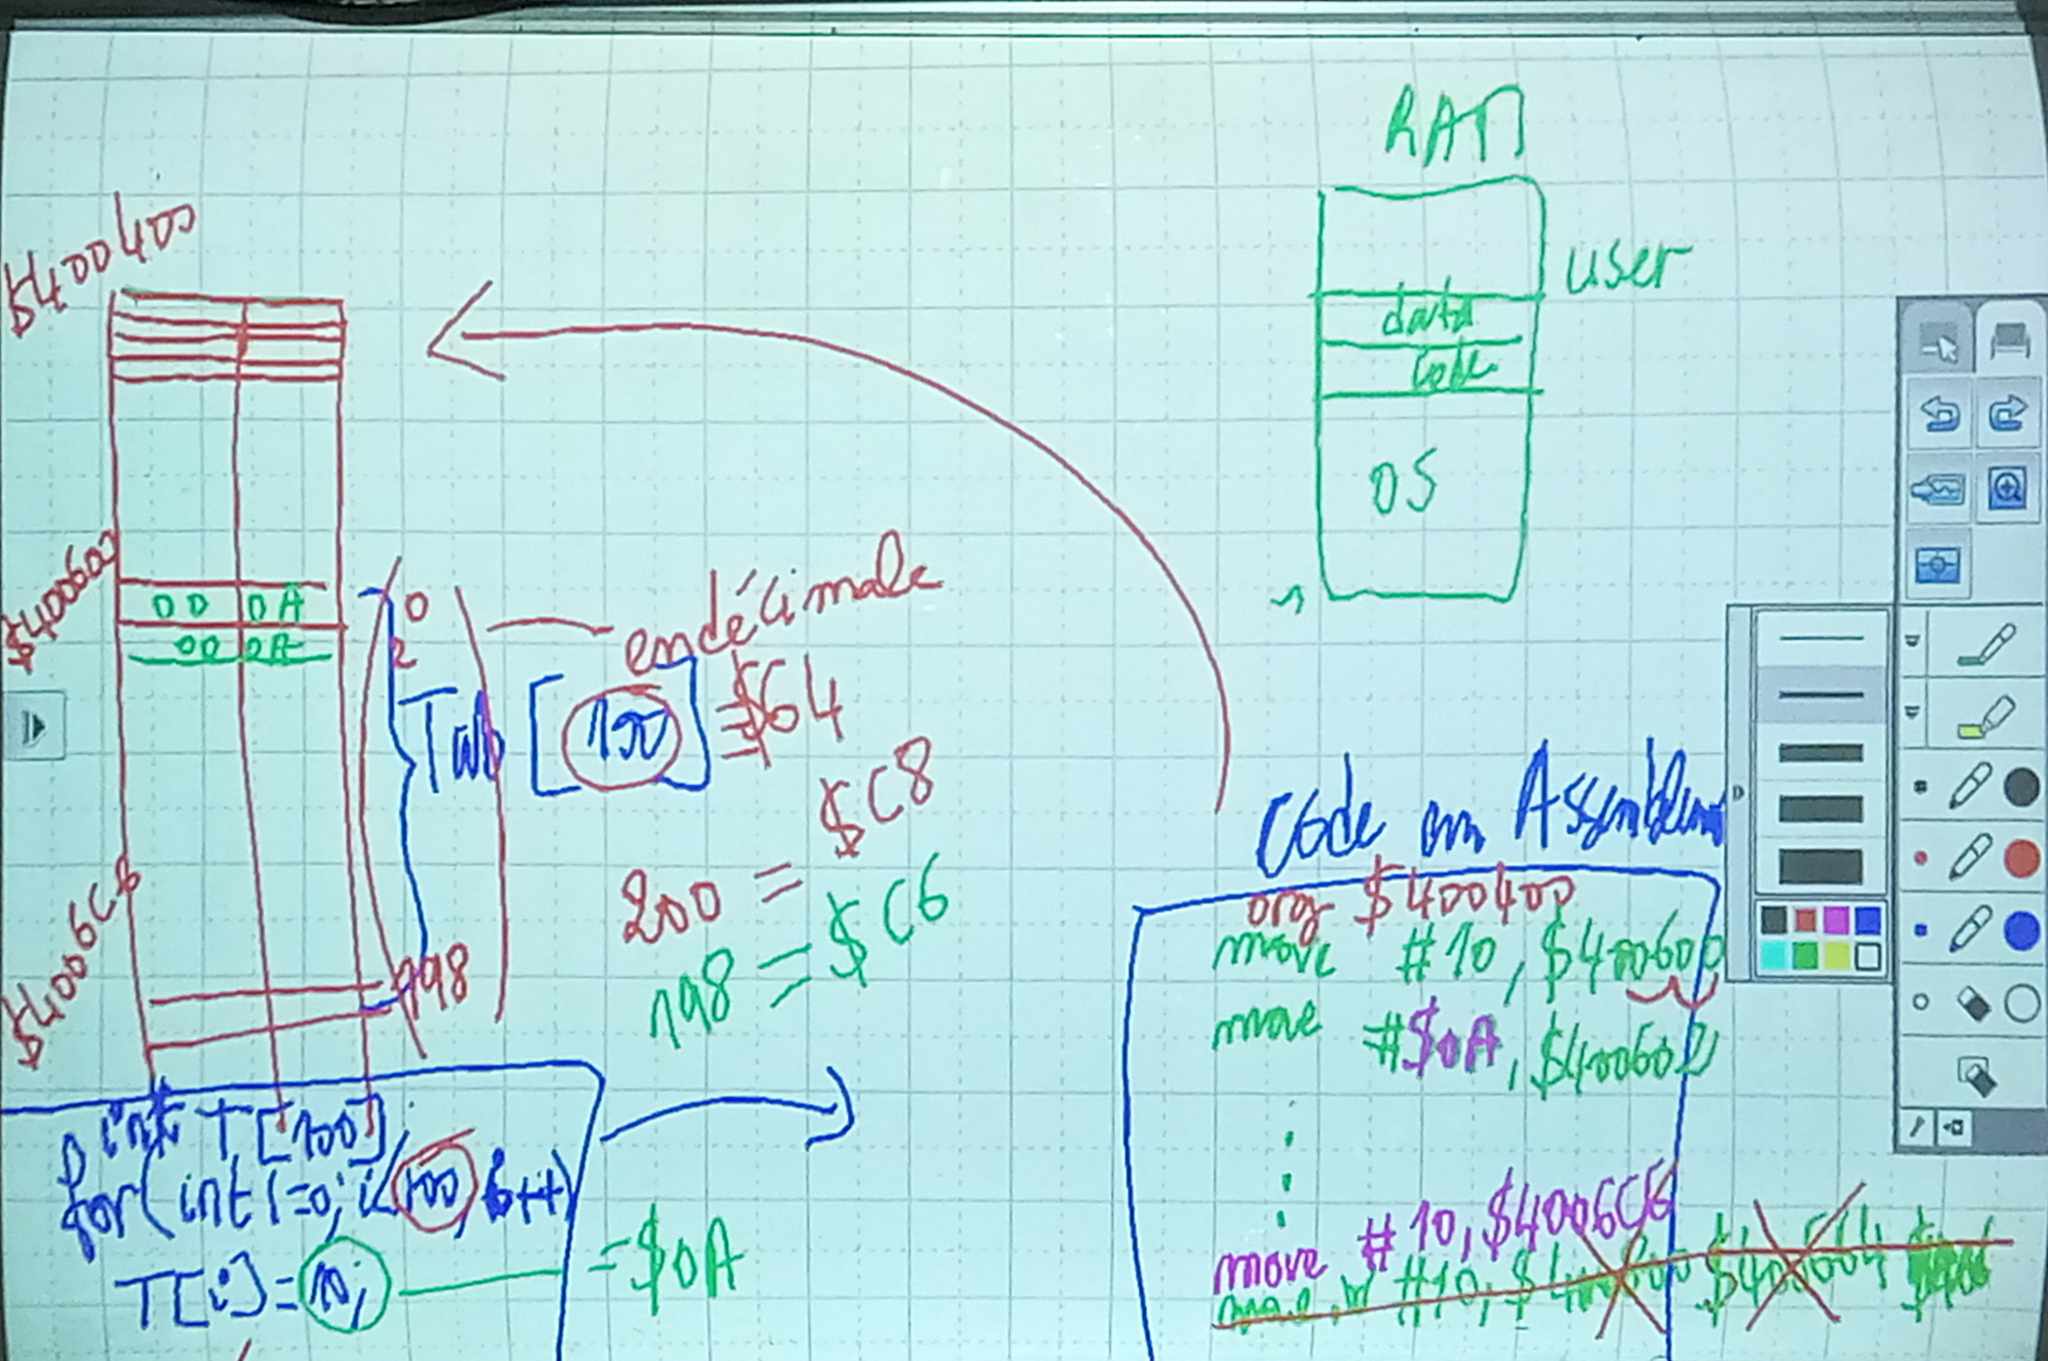 RAM
user
data
code
OS
$400400
$400600
00 0A
00 0A
0
2
en décimale
Tab [100] = $64
200 = $C8
198 = $C6
198
$4006C6
int T[100];
for(int i=0; i<100; i++)
T[i]=10;
= $0A
Code en Assembleur
org $400400
move #10, $400600
move #$0A, $400602
move #10, $4006C6
move.w #10, $400600 $400664